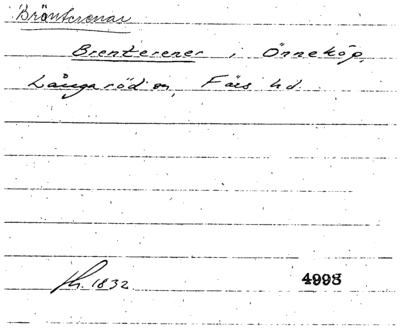 Brönternar
Brenterener i Önneköp,
Långaröd sn, Färs hd.
Kh. 1832 4998